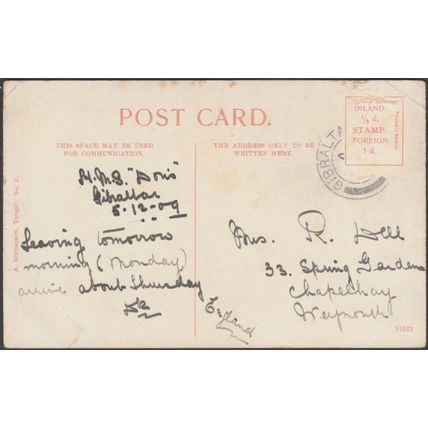 POST CARD.
THIS SPACE MAY BE USED
FOR COMMUNICATION.
THE ADDRESS ONLY TO BE
WRITTEN HERE.
INLAND
½ d.
STAMP.
FOREIGN
1 d.
Printed in Bavaria
GIBRALT
H.M.S. "Doris"
Gibraltar
5-12-09
Leaving tomorrow
morning (Monday)
arrive about Thursday
Mrs. R. Dell
33. Spring Gardens
Chapelhay
Weymouth
England
51022
Tangier No. 2.